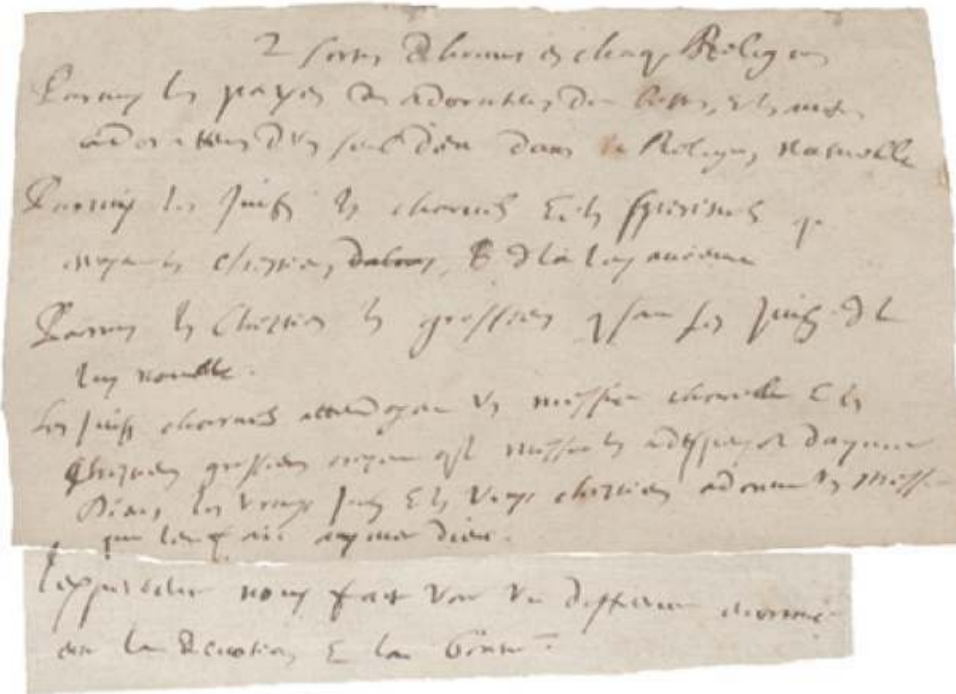 2 sortes d'hommes en chaq. Religion
Parmy les payens des adorateurs de bestes, et les autres
adorateurs d'un seul dieu dans la Religion naturelle
Parmy les juifs les charnels et les spirituels q
estoyent les chrestiens de la loy ancienne
Parmy les chrestiens les grossiers q sont les juifs de la
loy nouvelle.
Les juifs charnels attendoyent un messie charnel et les
chrestiens grossiers croyent q le messie les a dispensez d'aymer
Dieu, les vrays juifs et les vrays chrestiens adorent un messie
qui leur fait aymer dieu.
L'experience nous fait voir une difference enorme
entre la devotion et la bonté.